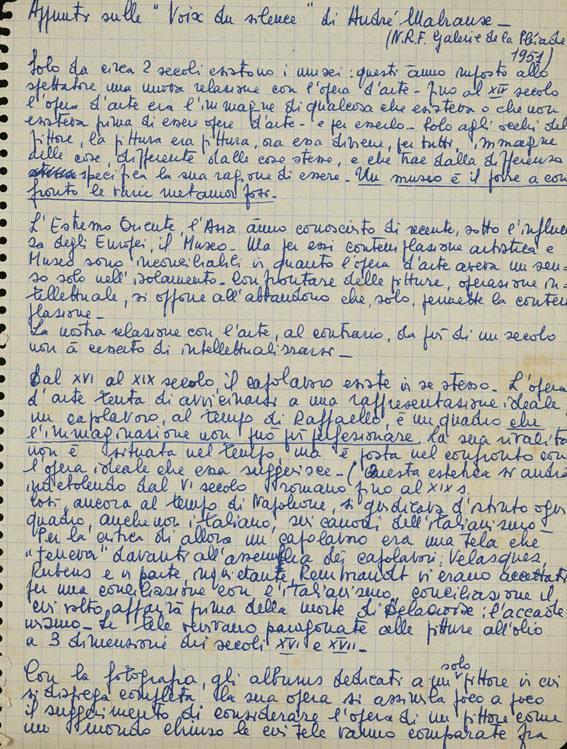 Appunti sulle "Voix du silence" di André Malraux -
(N.R.F. Galerie de la Pléiade
1951)
Solo da circa 2 secoli esistono i musei: questi ànno imposto allo
spettatore una nuova relazione con l'opera d'arte - fino al XIX secolo
l'opera d'arte era l'immagine di qualcosa che esisteva o che non
esisteva prima di essere opere d'arte - e per esserlo - Solo agli occhi del
pittore, la pittura era pittura, ora essa diviene, per tutti, immagine
delle cose, differente dalle cose stesse, e che trae dalla differenza
specifica la sua ragione di essere - Un museo è il porre a con
fronto le varie metamorfosi.
L'Estremo Oriente, l'Asia ànno conosciuto di recente, sotto l'influen
sa degli Europei, il Museo - Ma per essi contemplasione artistica e
Museo sono inconciliabili in quanto l'opera d'arte aveva un sen-
so solo nell'isolamento - Confrontare delle pitture, operasione in-
tellettuale, si oppone all'abbandono che, solo, permette la contem
plasione -
La nostra relasione con l'arte, al contrario, da più di un secolo
non à cessato di intellettualizzarsi -
Dal XVI al XIX secolo, il capolavoro esiste in se stesso - L'opera
d'arte tenta di avvicinarsi a una rappresentasione ideale,
un capolavoro, al tempo di Raffaello, è un quadro che
l'immaginasione non può più perfesionare, la sua rivalità
non è situata nel tempo, ma è posta nel confronto con
l'opera ideale che essa suggerisce - (Questa estetica si andrà
indebolendo dal VI secolo romano fino al XIX s.
Così, ancora al tempo di Napoleone, si giudicava d'istinto ogni
quadro, anche non italiano, sui canoni dell'italianismo -
Per la critica di allora un capolavoro era una tela che
"teneva" davanti all'assemblea dei capolavori: Velasques,
Rubens e in parte, inquietante, Rembrandt vi erano accettati
per una conciliasione con l'italianismo, conciliasione il
cui volto apparirà prima della morte di Delacroix: l'accade
mismo - Le tele venivano paragonate alle pitture all'olio
a 3 dimensioni dei secoli XVI e XVII -
Con la fotografia, gli albums dedicati a un solo pittore in cui
si dispiega completa la sua opera si assimila poco a poco
il suggerimento di considerare l'opera di un pittore come
un mondo chiuso le cui tele vanno comparate fra